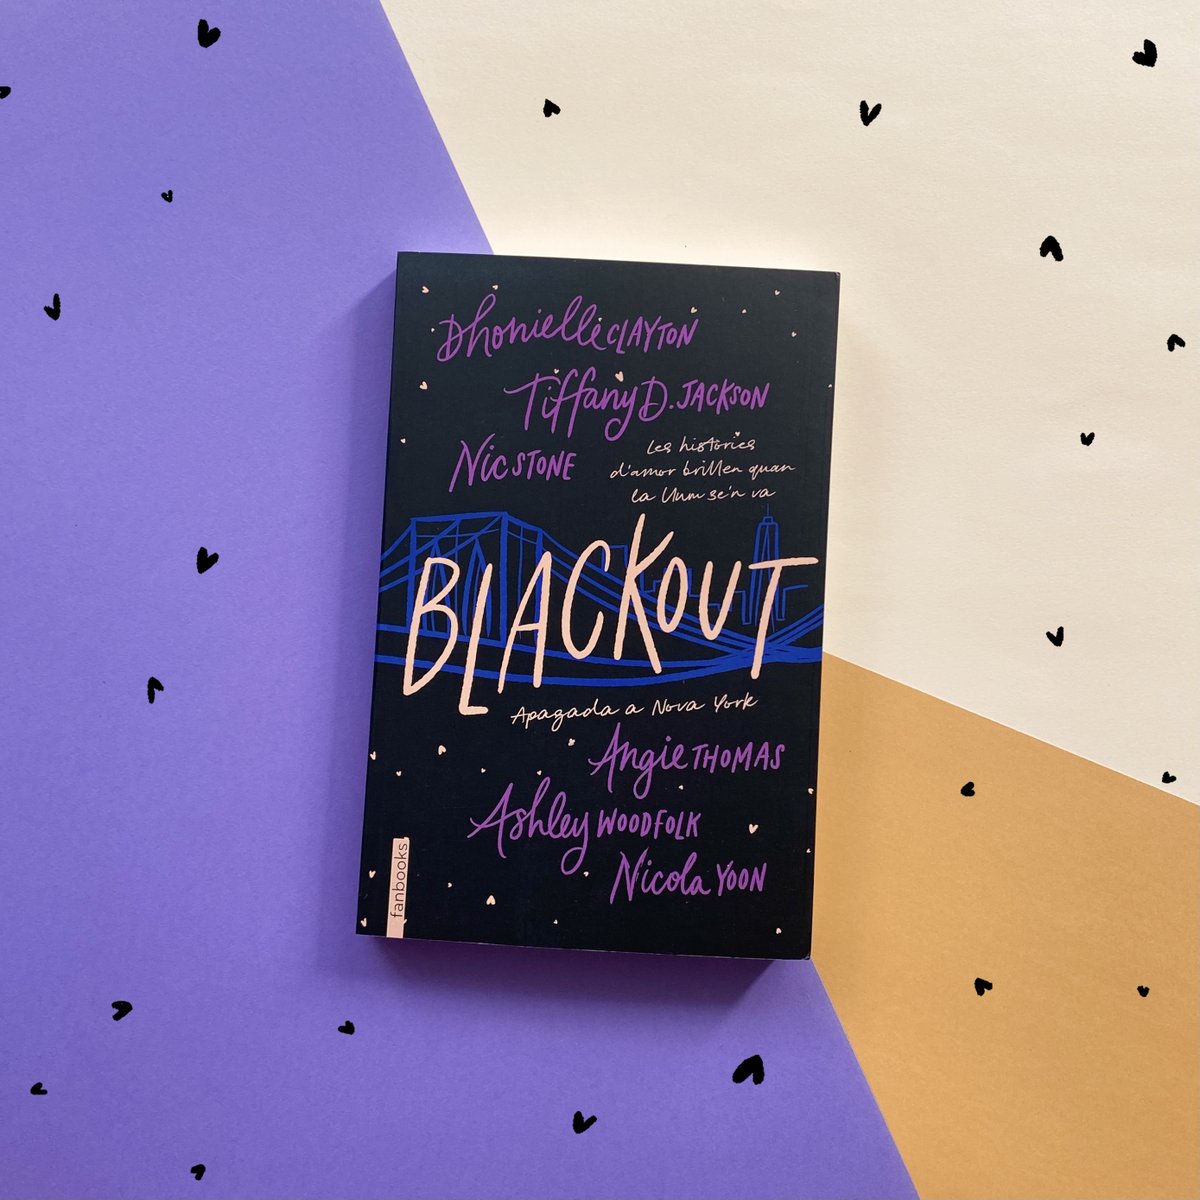 Dhonielle CLAYTON
Tiffany D. JACKSON
Nic STONE
Les històries
d'amor brillen quan
la llum se'n va
BLACKOUT
Apagada a Nova York
Angie THOMAS
Ashley WOODFOLK
Nicola YOON
fanbooks